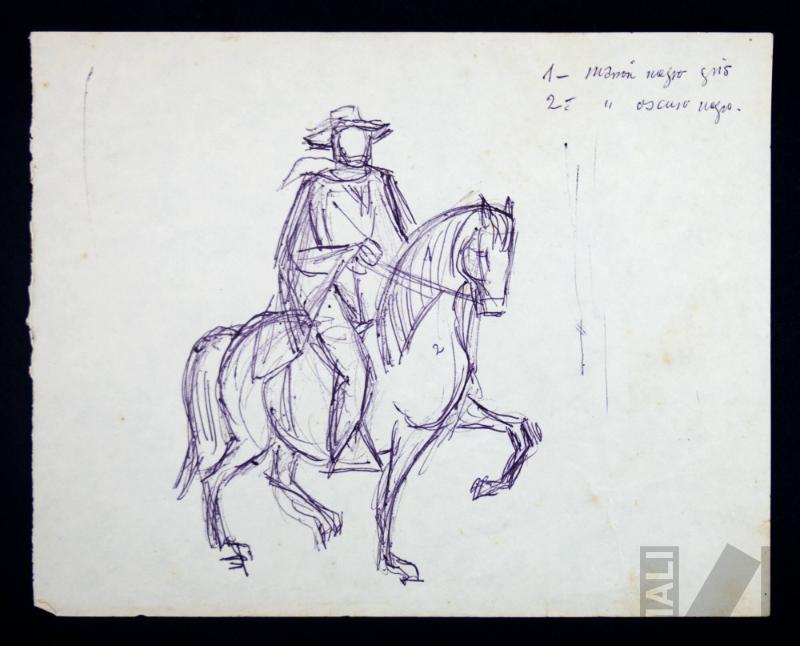 1- marrón negro gris
2= " oscuro negro.
2
MALI